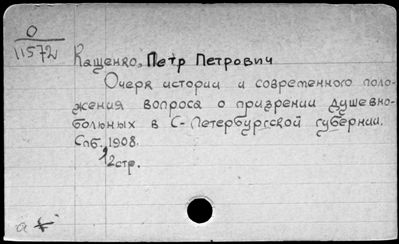 О
11572
Кащенко, Петр Петрович
Очерк истории и современного поло-
жения вопроса о призрении душевно-
больных в С-Петербургской губернии.
Спб. 1908.
12стр.